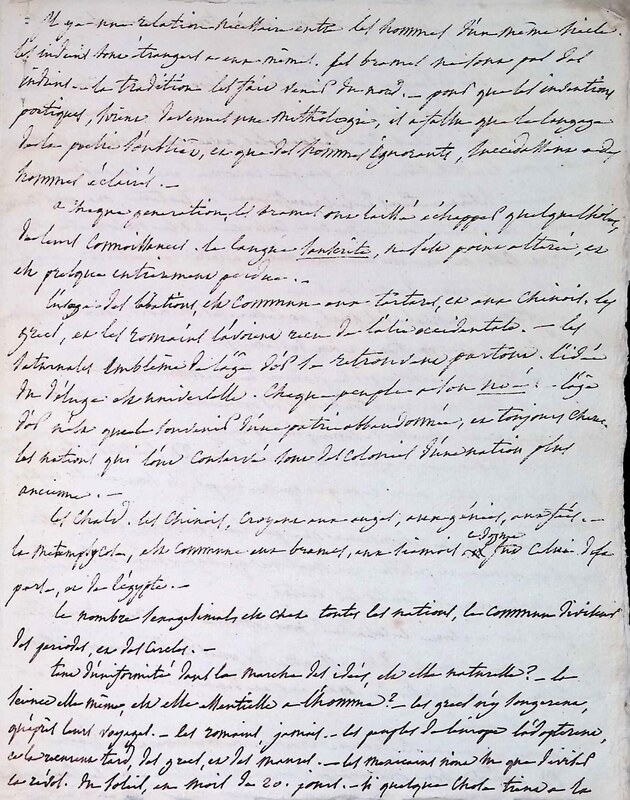 Il y a une relation nécessaire entre les hommes d'un même siècle.
les indiens sont étrangers a eux mêmes. les brames ne sont pas des
indiens. – la tradition les fait venir du nord. – pour que les inventions
poetiques, soient devenues une mithologie, il a fallu que le langage
de la poesie s'oublie, et que des hommes ignorants, succédassent a des
hommes éclairés. –
a chaque generation, les brames ont laissé échapper quelque chose
de leurs connoissances. la langue sanscrite, s'est a peine alterée, et
est presque entierement perdue. –
l'usage des libations, est commun aux tartares, et aux chinois. les
grecs, et les romains l'avoient recu de l'asie occidentale. – les
saturnales emblême de l'âge d'or se retrouvent partout. l'idée
du déluge est universelle. Chaque peuple a son noé. l'âge
d'or n'est que le souvenir d'une patrie abbandonnée, et toujours chere.
les nations qui l'ont conservé sont des colonies d'une nation plus
ancienne. –
les Chald. les Chinois, croyent aux anges, aux génies, aux fées. –
la métempsycose, est commune aux brames, aux siamois ce dogme fut celui de la
perse, et de l'égypte. –
le nombre sexagesimal est chez toutes les nations, le commun diviseur
des periodes, et des cercles. –
tant d'uniformité dans la marche des idées, est elle naturelle? – la
science elle même, est elle essentielle a l'homme? – les grecs n'y songerent,
qu'après leurs voyages. – les romains, jamais. – les peuples de l'europe l'adopterent,
et la recurent tard, des grecs, et des maures. – les mexicains n'ont su que diviser
la révol. du soleil, en mois de 20. jours. – si quelque chose tient a la